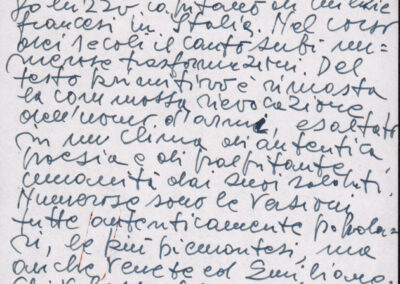 francesi in Italia. Nel corso
dei secoli il canto subì nu=
merose trasformazioni. Del
testo primitivo è rimasta
la commossa rievocazione
dell'uomo d'armi, esaltato
in un clima di autentica
poesia e di palpitante
umanità dai suoi soldati.
Numerose sono le versioni
tutte autenticamente popola=
ri, le più piemontesi, ma
anche venete ed Emiliane.